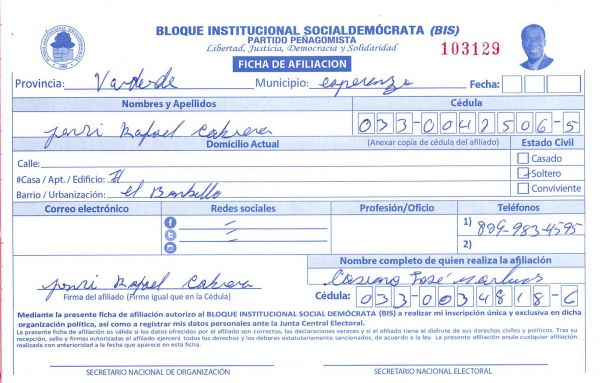 BLOQUE INSTITUCIONAL SOCIALDEMÓCRATA (BIS)
PARTIDO PEÑAGOMISTA
Libertad, Justicia, Democracia y Solidaridad
103129
FICHA DE AFILIACION
Provincia: Valverde Municipio: esperanza Fecha:
Nombres y Apellidos Cédula
Rafael Cabrera 033-0042506-5
Domicilio Actual (Anexar copia de cédula del afiliado) Estado Civil
Calle: Casado
#Casa / Apt. / Edificio: Soltero
Barrio / Urbanización: el Conviviente
Correo electrónico Redes sociales Profesión/Oficio Teléfonos
1) 809-983-4595
2)
Nombre completo de quien realiza la afiliación
Rafael Cabrera José
Firma del afiliado (Firme igual que en la Cédula) Cédula: 033-0034818-6
Mediante la presente ficha de afiliación autorizo al BLOQUE INSTITUCIONAL SOCIAL DEMÓCRATA (BIS) a realizar mi inscripción única y exclusiva en dicha
organización política, así como a registrar mis datos personales ante la Junta Central Electoral.
La presente ficha de afiliación es válida si los datos ofrecidos por el afiliado son correctos, las declaraciones veraces y si el afiliado tiene el disfrute de sus derechos civiles y políticos. Tras su
recepción, sello y firmas autorizadas el afiliado ejercerá todos los derechos y los deberes estatutariamente sancionados, de acuerdo a la ley. La presente afiliación anula cualquier afiliación
realizada con anterioridad a la fecha que aparece en esta ficha.
SECRETARIO NACIONAL DE ORGANIZACIÓN SECRETARIO NACIONAL ELECTORAL